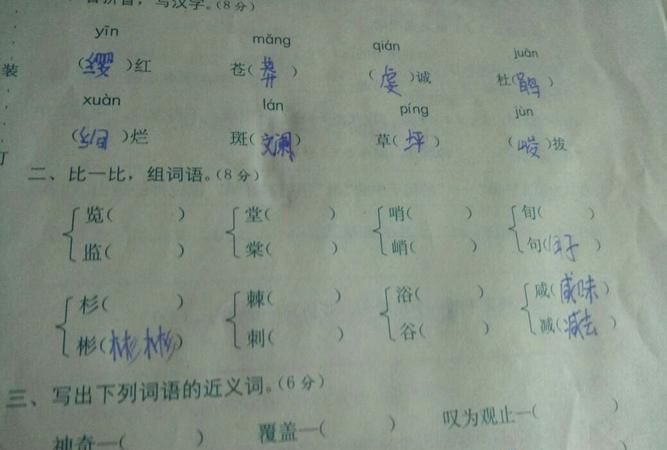 看拼音，写汉字。(8分)
yīn mǎng qián juān
(缨)红 苍(莽) (虔)诚 杜(鹃)
装
xuàn lán píng jùn
(绚)烂 斑(斓) 草(坪) (峻)拔
订
二、比一比，组词语。(8分)
览( ) 堂( ) 哨( ) 旬( )
监( ) 棠( ) 峭( ) 句(句子)
杉( ) 棘( ) 浴( ) 咸(咸味)
彬(彬彬) 刺( ) 谷( ) 减(减去)
三、写出下列词语的近义词。(6分)
神奇—( ) 覆盖—( ) 叹为观止—( )